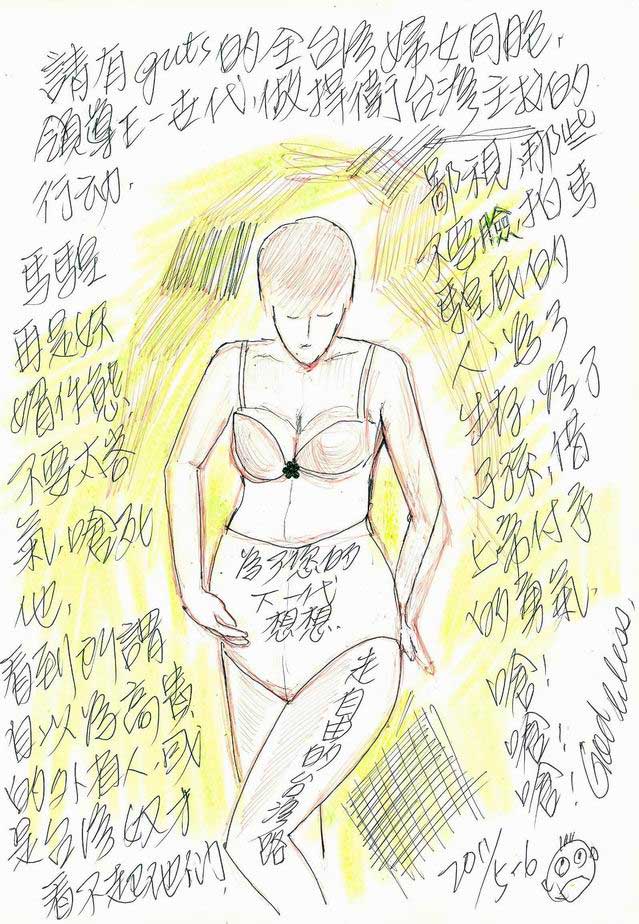 請有guts的全台灣婦女同胞,
領導上一世代,做捍衛台灣主权的
行动.
馬騜
再是妖
媚作態,
不要太客
氣,嗆死
他,
看到所謂
自以為高貴
的外省人或
是台灣奴才
看不起他们!
鄙視那些
不要臉,拍馬
騜屁的
人,為了
生存,為了
子孫,借
上帝付予
的勇氣,
嗆!
嗆!
嗆!
God bless,
為了您的
下一代
想想.
走自由的台灣路
2011/5-6